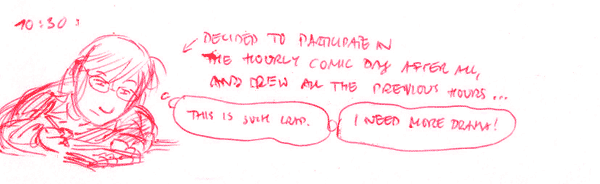 10:30:
DECIDED TO PARTICIPATE IN
THE HOURLY COMIC DAY AFTER ALL,
AND DREW ALL THE PREVIOUS HOURS...
THIS IS SUCH CRAP.
I NEED MORE DRAMA!